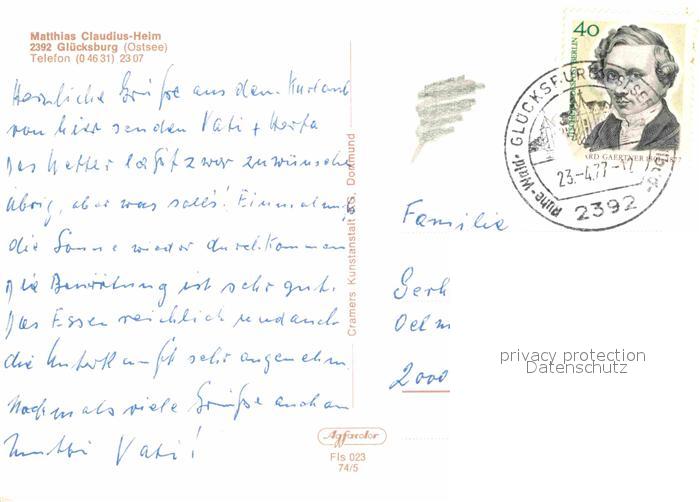 Matthias Claudius-Heim
2392 Glücksburg (Ostsee)
Telefon (0 46 31) 23 07
Herzliche Grüße aus dem Kurland
von hier senden Vati +
Das Wetter läßt zwar zu wünschen
übrig, aber was soll's! Einmal muß
die Sonne wieder durchkommen
Die Bewirtung ist sehr gut.
Das Essen reichlich und auch
die Unterkunft sehr angenehm.
Nochmals viele Grüße auch an
Mutti Vati!
Cramers Kunstanstalt KG. Dortmund
Agfacolor
Fls 023
74/5
40
BERLIN
GAERTNER 1801-1877
GLÜCKSBURG OSTSEE
23.-4.77-12
Ruhe · Wald ·
2392
Familie
Gerh
2000
privacy protection
Datenschutz